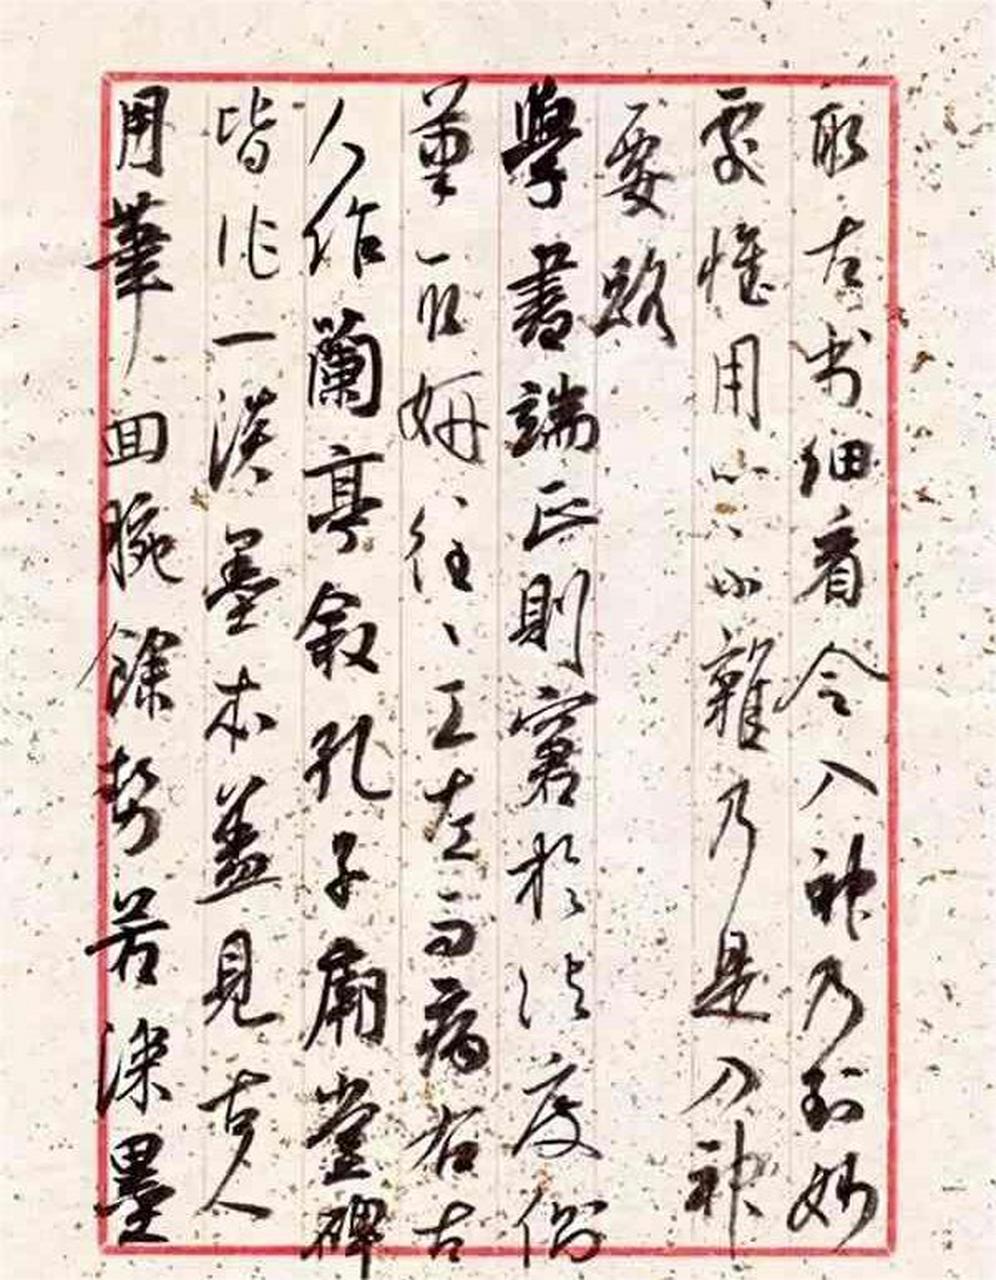 取古书细看令入神乃到妙
處惟用心不雜乃是入神
要路
學書端正則窘於法度側
筆取妍往〻工左而病右古
人作蘭亭叙孔子廟堂碑
皆作一淡墨本盖見古人
用筆回腕餘勢若深墨